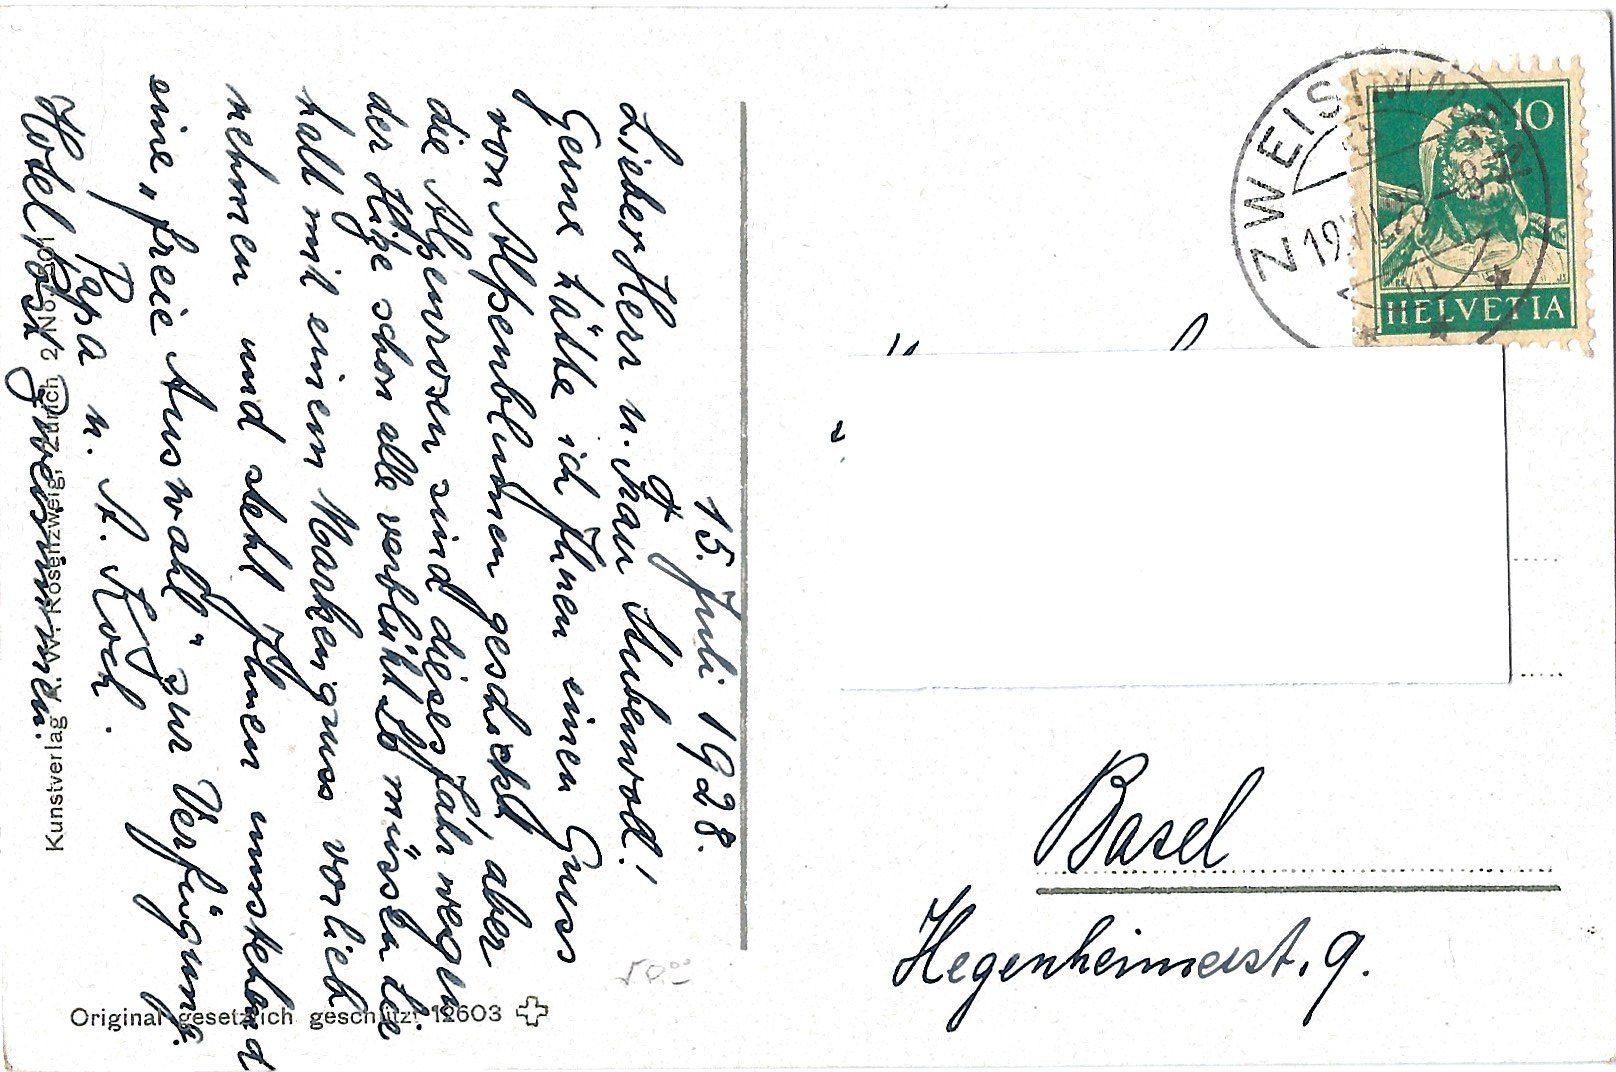 15. Juli 1928.
Lieber Herr u. Frau Hubenvod!
Gerne hätte ich Ihnen einen Gruss
von Alpenblumen geschickt, aber
die Alpenrosen sind dieses Jahr wegen
der Hitze schon alle verblüht. So müssen Sie
halt mit einem Markengruss vorlieb
nehmen und steht Ihnen umstehend
eine „freie Auswahl“ zur Verfügung.
Papa u. A. Koch.
Hotel Post Zweisimmen.
Kunstverlag A. W. Rosenzweig, Zürich 2 No. 901
Original gesetzlich geschützt 12603
50.00
ZWEISIMMEN
19.VII.28
10
HELVETIA
Basel
Hegenheimerst. 9.